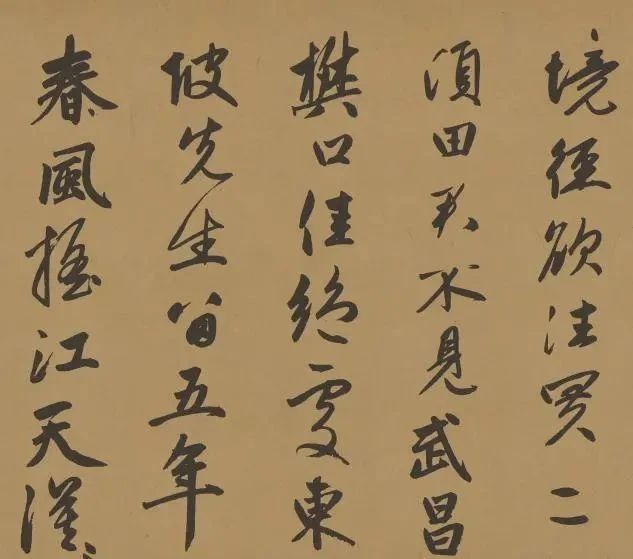 境徑欲往買二
頃田君不見武昌
樊口佳絕處東
坡先生留五年
春風搖江天漠